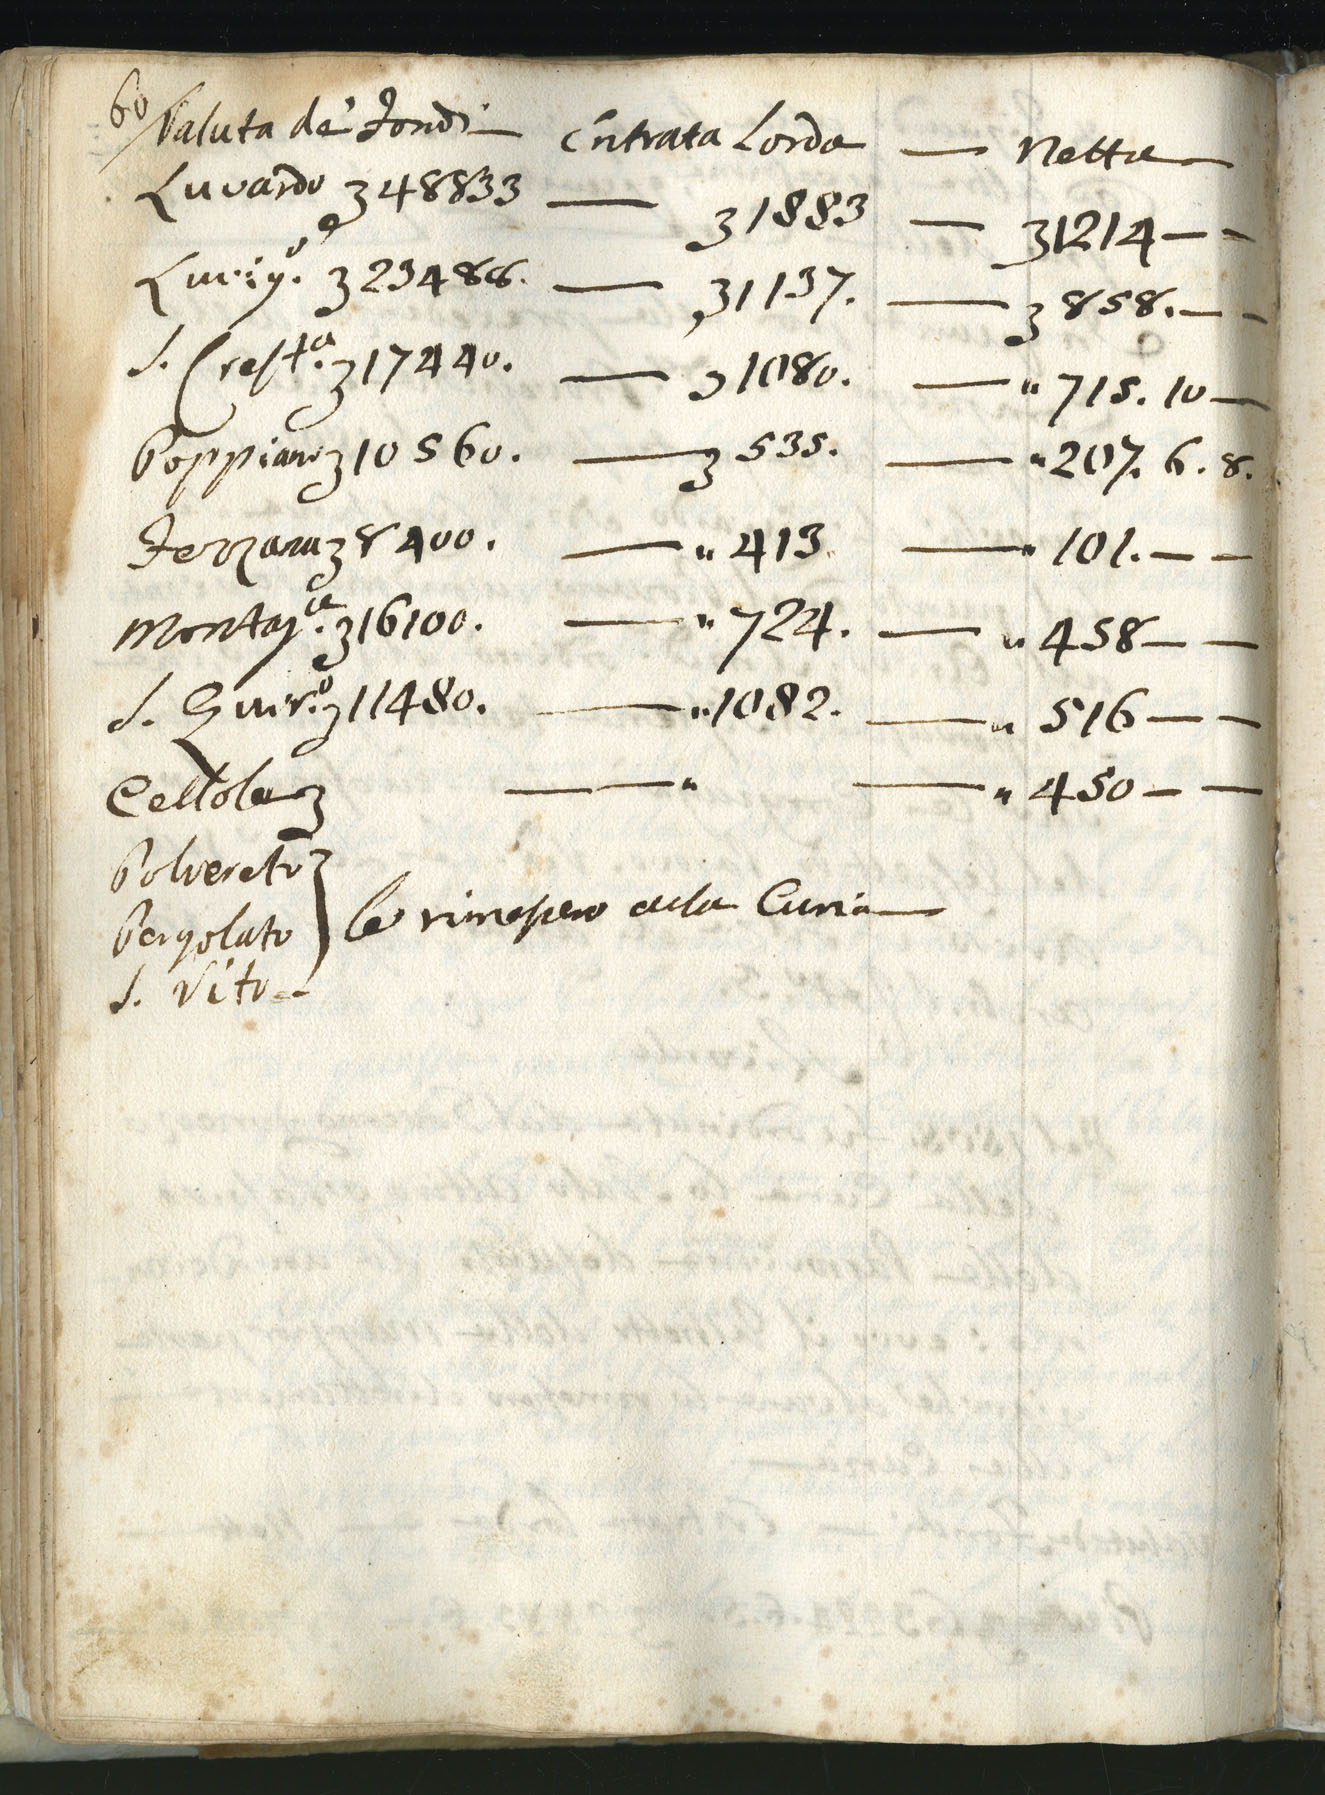 60
Valuta de' Fondi — Entrata Lorda — Netta —
Luiardo ʒ 48833 — ʒ 1883 — ʒ 1214 — —
ʒ 23488. — ʒ 1137. — ʒ 858. — —
S. Crest.ª ʒ 17440. — ʒ 1080. — " 715. 10 —
Poppiano ʒ 10560. — ʒ 535. — " 207. 6. 8.
Ferzano ʒ 8400. — " 413. — " 101. — —
Montag.ª ʒ 16100. — " 724. — " 458 — —
S. Quir.º ʒ 11480. — " 1082. — " 516 — —
Cellole ʒ — — " — " 450 — —
Polvereto
Pergolato } le rimessero alla Curia —
S. Vito